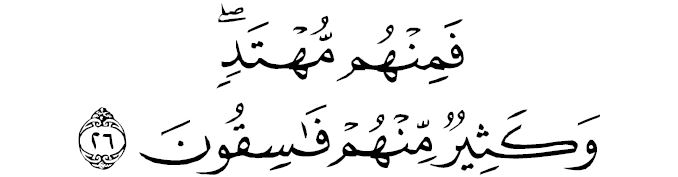 فَمِنْهُم مُّهْتَدٍۖ
وَكَثِيرٌ مِّنْهُمْ فَٰسِقُونَ ٢٦